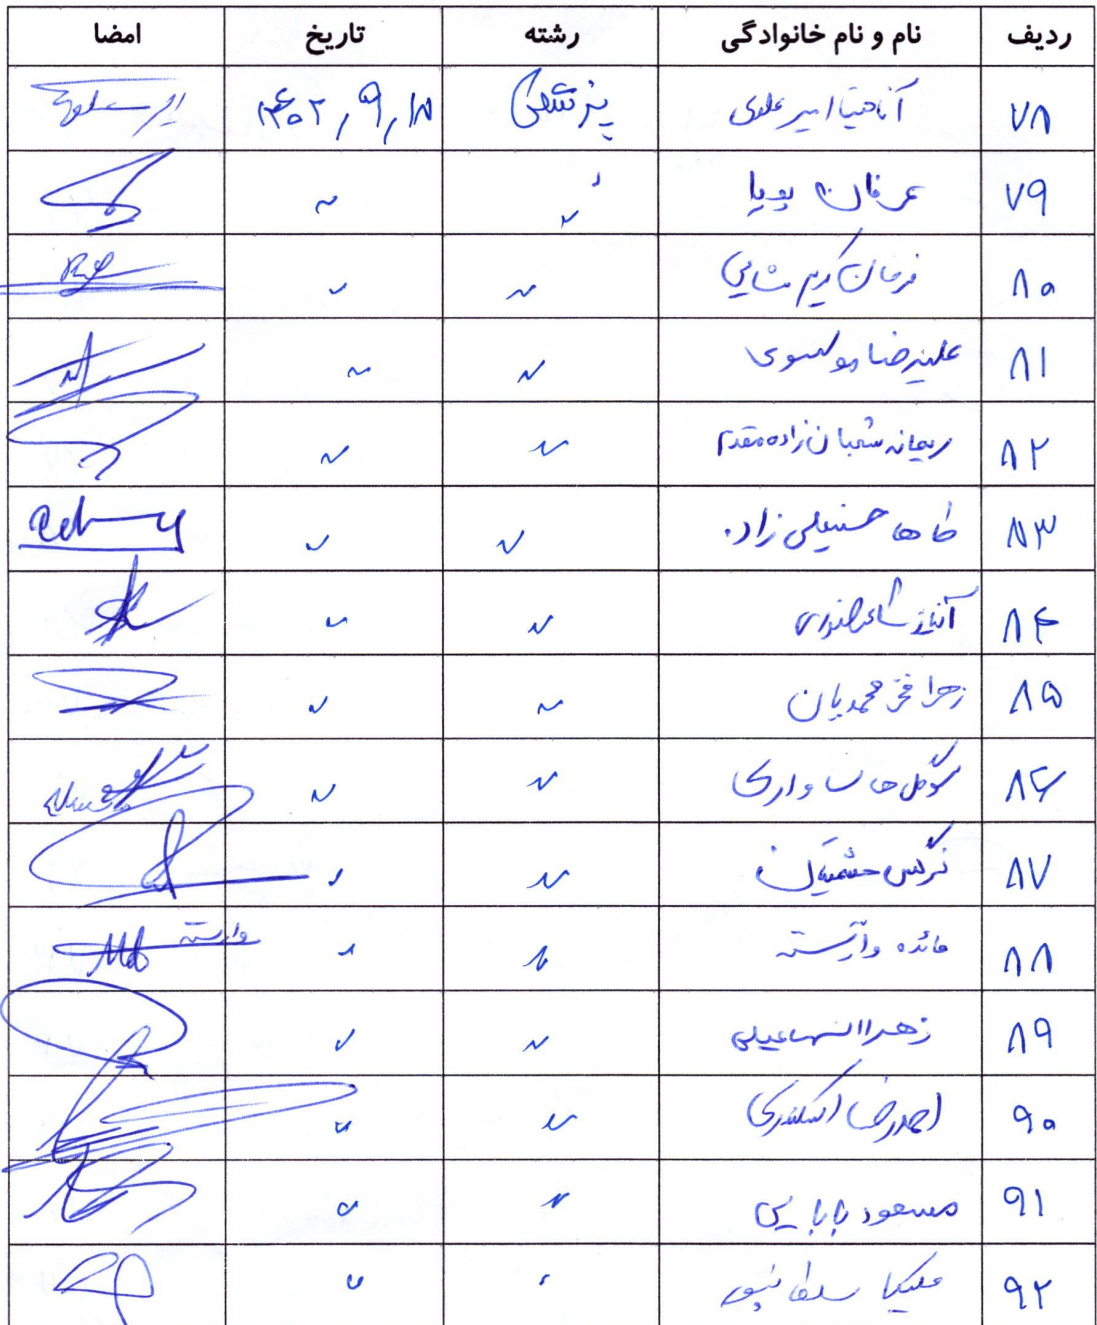 ردیف نام و نام خانوادگی رشته تاریخ امضا
۷۸ آناهیتا امیر علوی پزشکی ۱۴۰۲,۹,۱۸
۷۹ عرفان پویا 〃 〃
۸۰ فرحان کریم 〃 〃
۸۱ علیرضا موسوی 〃 〃
۸۲ ریحانه شعبان زاده مقدم 〃 〃
۸۳ طاها حسنعلی زاده 〃 〃
۸۴ 〃 〃
۸۵ زهرا فخر محمدیان 〃 〃
۸۶ 〃 〃
۸۷ نرگس حشمتیان 〃 〃
۸۸ مائده وارسته 〃 〃 وارسته
۸۹ زهرا اسماعیلی 〃 〃
۹۰ احمدرضا اسکندری 〃 〃
۹۱ مسعود بابایی 〃 〃
۹۲ ملیکا سلطانپور 〃 〃